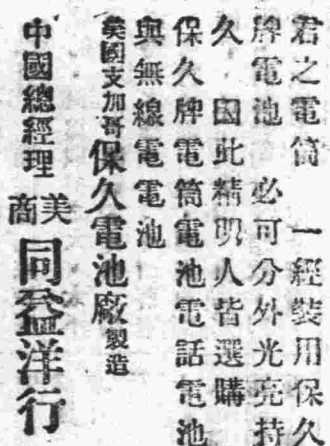 君之電筒　一經裝用保久
牌電池　必可分外光亮持
久　因此精明人皆選購
保久牌電筒電池電話電池
與無線電電池
美國支加哥保久電池廠製造
中國總經理
美商
同益洋行